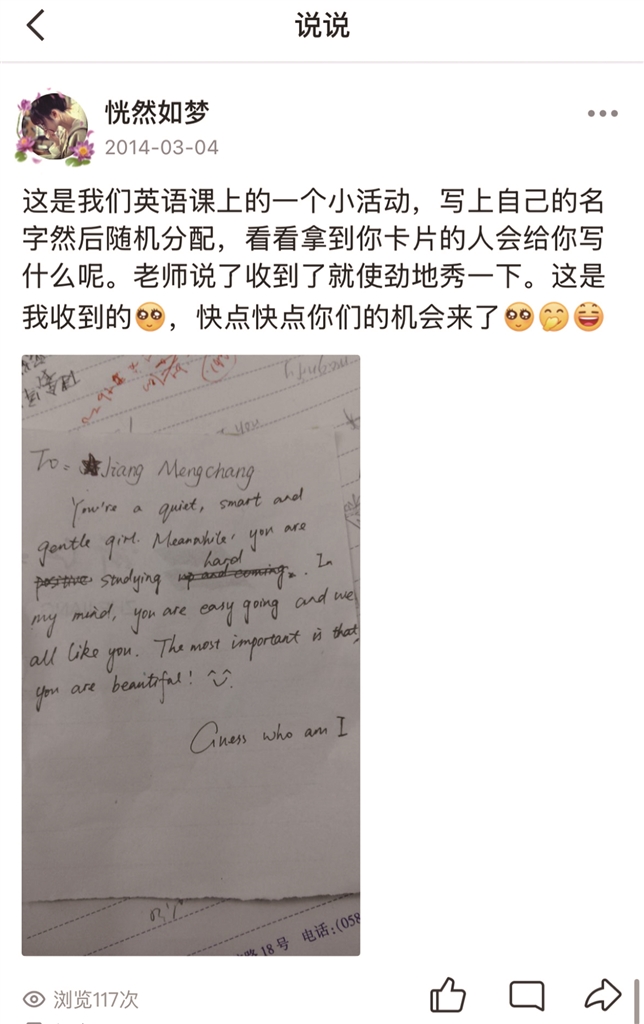 说说
恍然如梦
2014-03-04
这是我们英语课上的一个小活动，写上自己的名
字然后随机分配，看看拿到你卡片的人会给你写
什么呢。老师说了收到了就使劲地秀一下。这是
我收到的🥺，快点快点你们的机会来了🥺🤭😄
you
To: Jiang Mengchang
You're a quiet, smart and
gentle girl. Meanwhile, you are
hard
positive studying up and coming. In
my mind, you are easy going and we
all like you. The most important is that,
you are beautiful! ツ.
Guess who am I
路18号 电话:(058
浏览117次